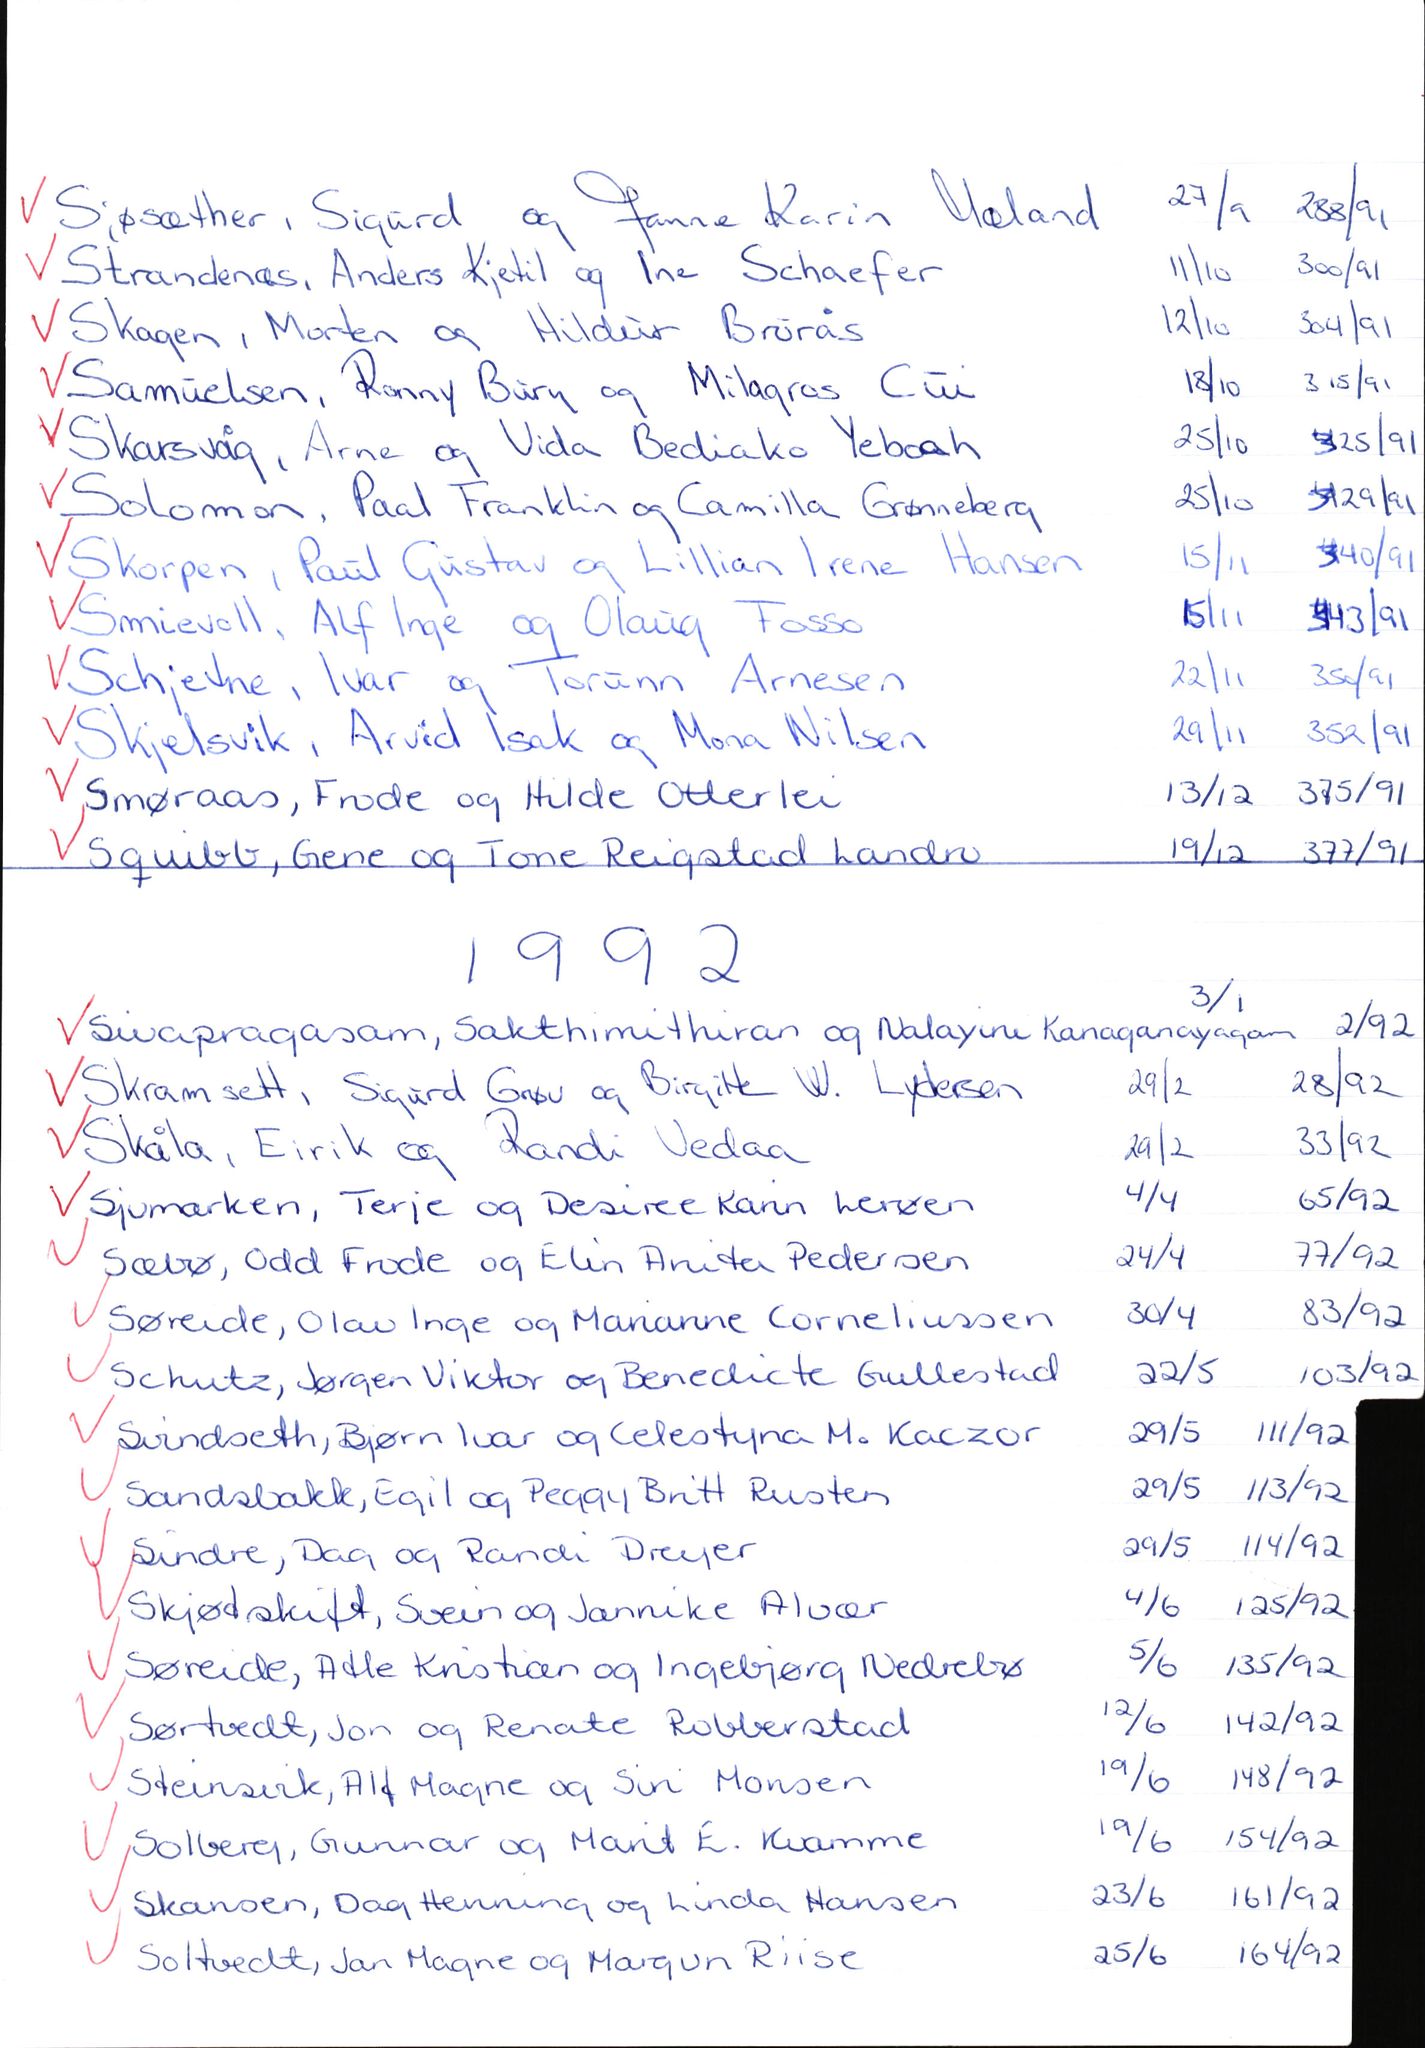 Sjøsæther, Sigurd og Janne Karin Mæland 27/9 288/91
Strandenæs, Anders Kjetil og Ine Schaefer 11/10 300/91
Skagen, Morten og Hildur Brurås 12/10 304/91
Samuelsen, Ronny Burg og Milagros Cui 18/10 315/91
Skarsvåg, Arne og Vida Bediako Yeboah 25/10 325/91
Solomon, Paal Franklin og Camilla Grønneberg 25/10 329/91
Skorpen, Paul Gustav og Lillian Irene Hansen 15/11 340/91
Smievoll, Alf Inge og Olaug Fosso 15/11 343/91
Schjetne, Ivar og Torunn Arnesen 22/11 350/91
Skjelsvik, Arvid Isak og Mona Nilsen 29/11 352/91
Smøraas, Frode og Hilde Otterlei 13/12 375/91
Squibb, Gene og Tone Reigstad Landro 19/12 377/91
1992
Sivapragasam, Sakthimithiran og Nalayini Kanaganayagam 3/1 2/92
Skramsett, Sigurd Grov og Birgitte W. Lydersen 29/2 28/92
Skåla, Eirik og Randi Vedaa 29/2 33/92
Sjumarken, Terje og Desiree Karin Lerøen 4/4 65/92
Sæbø, Odd Frode og Elin Anita Pedersen 24/4 77/92
Søreide, Olav Inge og Marianne Corneliussen 30/4 83/92
Schutz, Jørgen Viktor og Benedicte Gullestad 22/5 103/92
Svindseth, Bjørn Ivar og Celestyna M. Kaczor 29/5 111/92
Sandsbakk, Egil og Peggy Britt Rusten 29/5 113/92
Sindre, Dag og Randi Dreyer 29/5 114/92
Skjødskift, Svein og Jannike Alvær 4/6 125/92
Søreide, Atle Kristian og Ingebjørg Nedrebø 5/6 135/92
Sørtvedt, Jon og Renate Robberstad 12/6 142/92
Steinsvik, Alf Magne og Siri Monsen 19/6 148/92
Solberg, Gunnar og Marit E. Kvamme 19/6 154/92
Skansen, Dag Henning og Linda Hansen 23/6 161/92
Soltvedt, Jan Magne og Margun Riise 25/6 164/92